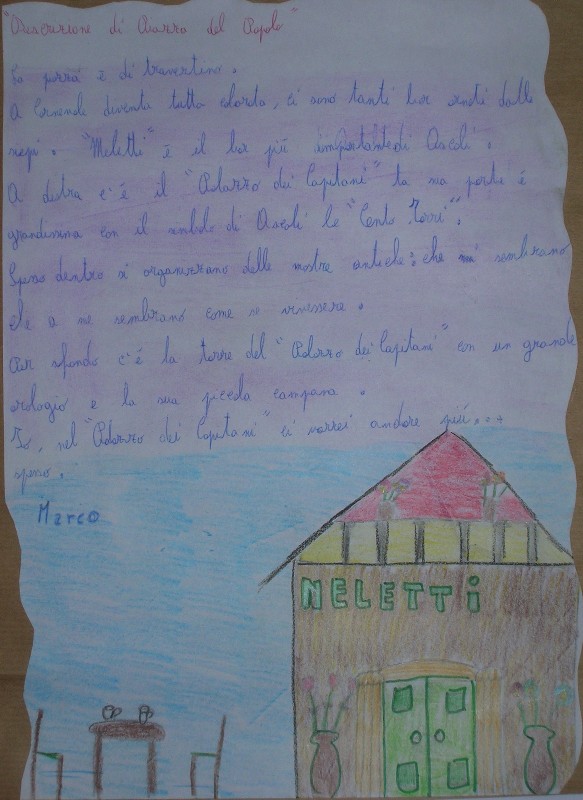 "Descrizione di Piazza del Popolo"
La piazza è di travertino.
A Carnevale diventa tutta colorata, ci sono tanti bar vestiti dalle
siepi. "Meletti" è il bar più importante di Ascoli.
A destra c'è il "Palazzo dei Capitani" la sua porta è
grandissima con il simbolo di Ascoli le "Cento Torri".
Spesso dentro si organizzano delle mostre antiche: che mi sembrano
che a me sembrano come se vivessero.
Per sfondo c'è la torre del "Palazzo dei Capitani" con un grande
orologio e la sua piccola campana.
Io, nel "Palazzo dei Capitani" ci vorrei andare più...
spesso.
Marco
NELETTi